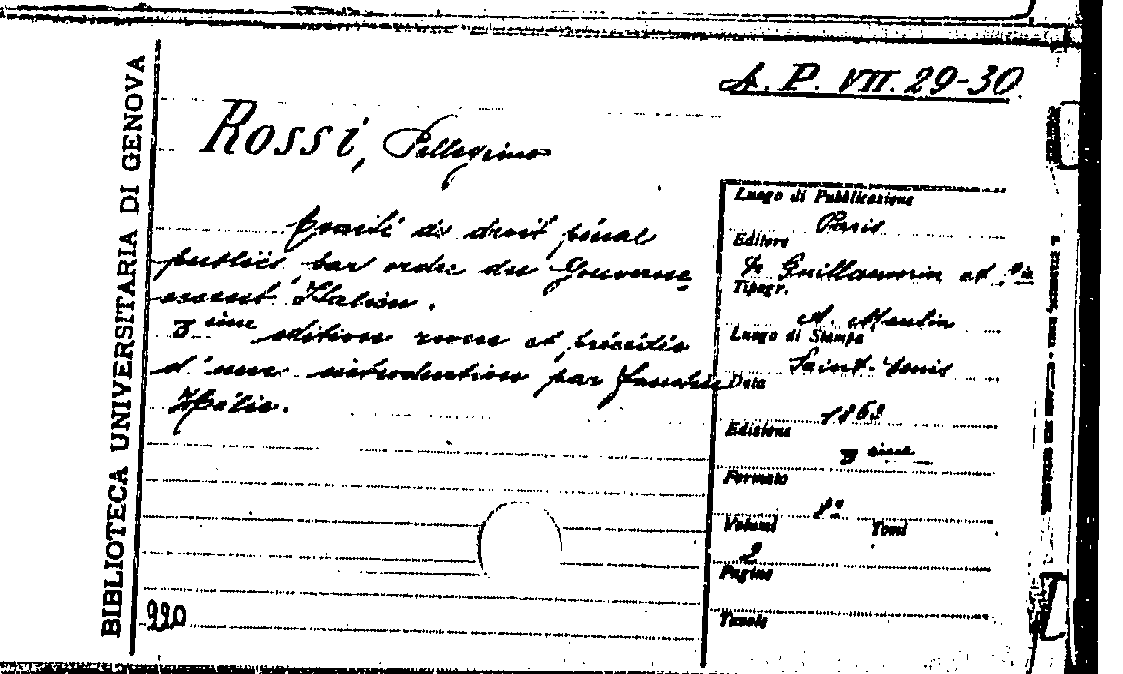 A. P. VII. 29-30
Rossi, Pellegrino
Traité de droit pénal
publiés par ordre du Gouverne
ment Italien.
3 eme edition revue et précédée
d'une introduction par Faustin
Hélie.
BIBLIOTECA UNIVERSITARIA DI GENOVA
990
Luogo di Pubblicazione
Paris
Editore
Guillaumin et Cie
Tipogr.
A. Moulin
Luogo di Stampa
Saint-Denis
Data
1863
Edizione
3 eme
Formato
8°
Volumi Tomi
2
Pagine
Tavole